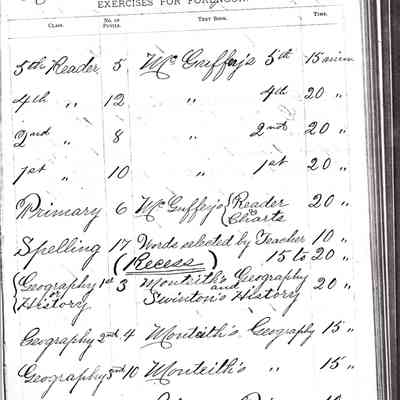 EXERCISES FOR FORENOON.
CLASS. NO. OF PUPILS. TEXT BOOK. TIME.
5th Reader 5 McGuffey's 5th 15 min
4th " 12 " 4th 20 "
2nd " 8 " 2nd 20 "
1st " 10 " 1st 20 "
Primary 6 McGuffey's { Reader & Charts 20 "
Spelling 17 Words selected by Teacher 10 "
(Recess) 15 to 20 "
{ Geography or History 1st 3 Monteith's Geography and Swinton's History 20 "
Geography 2nd 4 Monteith's Geography 15 "
Geography 3rd 10 Monteith's " 15 "